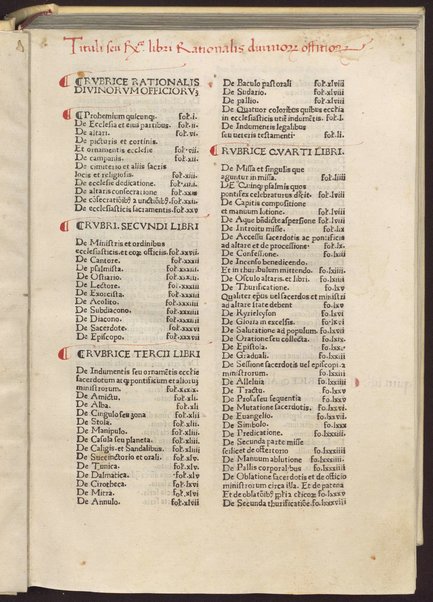 Tituli seu Rce libri Rationalis diuinorum officiorum
CRVBRICE RATIONALIS
DIVINORVM OFFICIORVꝫ
Prohemium quicunqꝫ. fol. i.
De Ecclesia et eius partibus. fol. ii.
De altari. fol. vi.
De picturis et cortinis.
Et ornamentis ecclesie fol. vii.
De campanis. fol. xii.
De cimiterio et aliis sacris
locis et religiosis. fol. xiii.
De ecclesie dedicatione. fol. xiiii.
De altaris consecratione fol. xxiii
De cōsecratiōibꝰ ⁊ unctiōibꝰ. fol. xxv.
De ecclesiasticis sacramentis. fol. xxv
CRVBRI. SECVNDI LIBRI
De Ministris et ordinibus
ecclesiasticis, et eoꝵ officiis. fol. xxvii.
De Cantore. fol. xxxii
De psalmista. fol. xxxii.
De Ostiario. fol. xxxii.
De Lectore. fol. xxxiii
De Exorcista. fol. xxxiii
De Acolito. fol. xxxiii
De Subdiacono. fol. xxxiiii
De Diacono. fol. xxxiiii
De Sacerdote. fol. xxxvi
De Episcopo. fol. xxxvii
CRVBRICE TERCII LIBRI
De Indumentis seu ornamētis ecclesie
sacerdotum atqꝫ pontificum et alioruꝫ
ministrorum. fol. xxxix.
De Amictu. fol. xli.
De Alba. fol. xli.
De Cingulo seu zona fol. xlii
De Stola. fol. xlii.
De Manipulo. fol. xliii.
De Casula seu planeta. fol. xliii.
De Caligis et Sandalibus. fol. xliiii
De Succinctorio et orali. fol. xlv.
De Tunica. fol. xlv.
De Dalmatica. fol. xlv
De Cirotheca. fol. xlvi
De Mitra. fol. xlvi
De Annulo. fol. xlvii
De Baculo pastorali fol. xlviii
De Sudario. fol. xlviii
De pallio. fol. xlviii
De Quatuor coloribus quibus ecclesia
in ecclesiasticis utit̄ indumētis. fol. l.
De Indumentis legalibus
seu ueteris testamenti. fol. li.
RVBRICE QVARTI LIBRI.
De Missa et singulis que
agunt̄ in missa. fol. liiii
DE Quinqꝫ psalmis quos
pontifex celebraturus dicit. fol. lviii
De Capitis compositione
et manuum lotione. fol. lviii
De Aque bn̄dicte aspersione fol. lviii
De Introitu misse. fol. lix
De Accessu sacerdotis ac pontificis
ad altare et de processione. fol. lx
De Confessione. fo. lxii
De Incenso benedicendo.
Et in thuribulum mittendo. fo. lxiiii.
De Osculo altaris, et libri. fo. lxiiii
De Thurificatione. fo. lxv
Qualiter epūs uel sacerdos et ministri
ad altare stare debent fo. lxv
De Kyrieleyson fo. lxv
De Gloria in excelsis. fo. lxvi
De Salutatione ad populum. fo. lxvii
De Oratione seu collecta. fo. lxix
De Epistola. fo. lxx.
De Graduali. fo. lxxii
De Sessione sacerdotis uel episcopi ⁊
ministrorum. fo. lxxiii
De Alleluia fo. lxxiiii
De Tractu. fo. lxxv
De Prosa seu sequentia fo. lxxv
De Mutatione sacerdotis. fo. lxxv
De Euangelio. fo. lxxv
De Simbolo. fo. lxxx
De Predicatione. fo. lxxxii
De Secunda parte misse
scilicet de offertorio fo. lxxxiii
De Manuum ablutione fo. lxxxiiii
De Pallis corporalibus fo. lxxxiiii
De Oblatione sacerdotis et de officio
ministrorum circa illa. Et de patena
Et de oblatōibꝰ pp̄li circa eoꝵ fo. lxxxv
De Secunda thurificatiōe. fo. lxxxviii